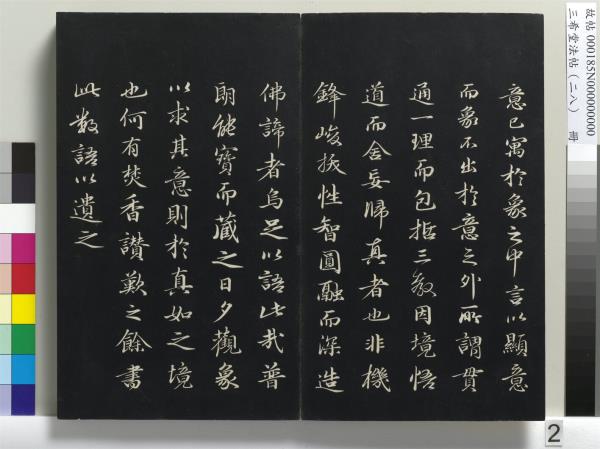 故帖 000185N000000000
三希堂法帖（二八） 冊
意已寓於象之中言以顯意
而象不出於意之外所謂貫
通一理而包括三教因境悟
道而舍妄歸真者也非機
鋒峻拔性智圓融而深造
佛諦者烏足以語此哉普
朗能寶而藏之日夕觀象
以求其意則於真如之境
也何有焚香讚歎之餘書
此數語以遺之
2